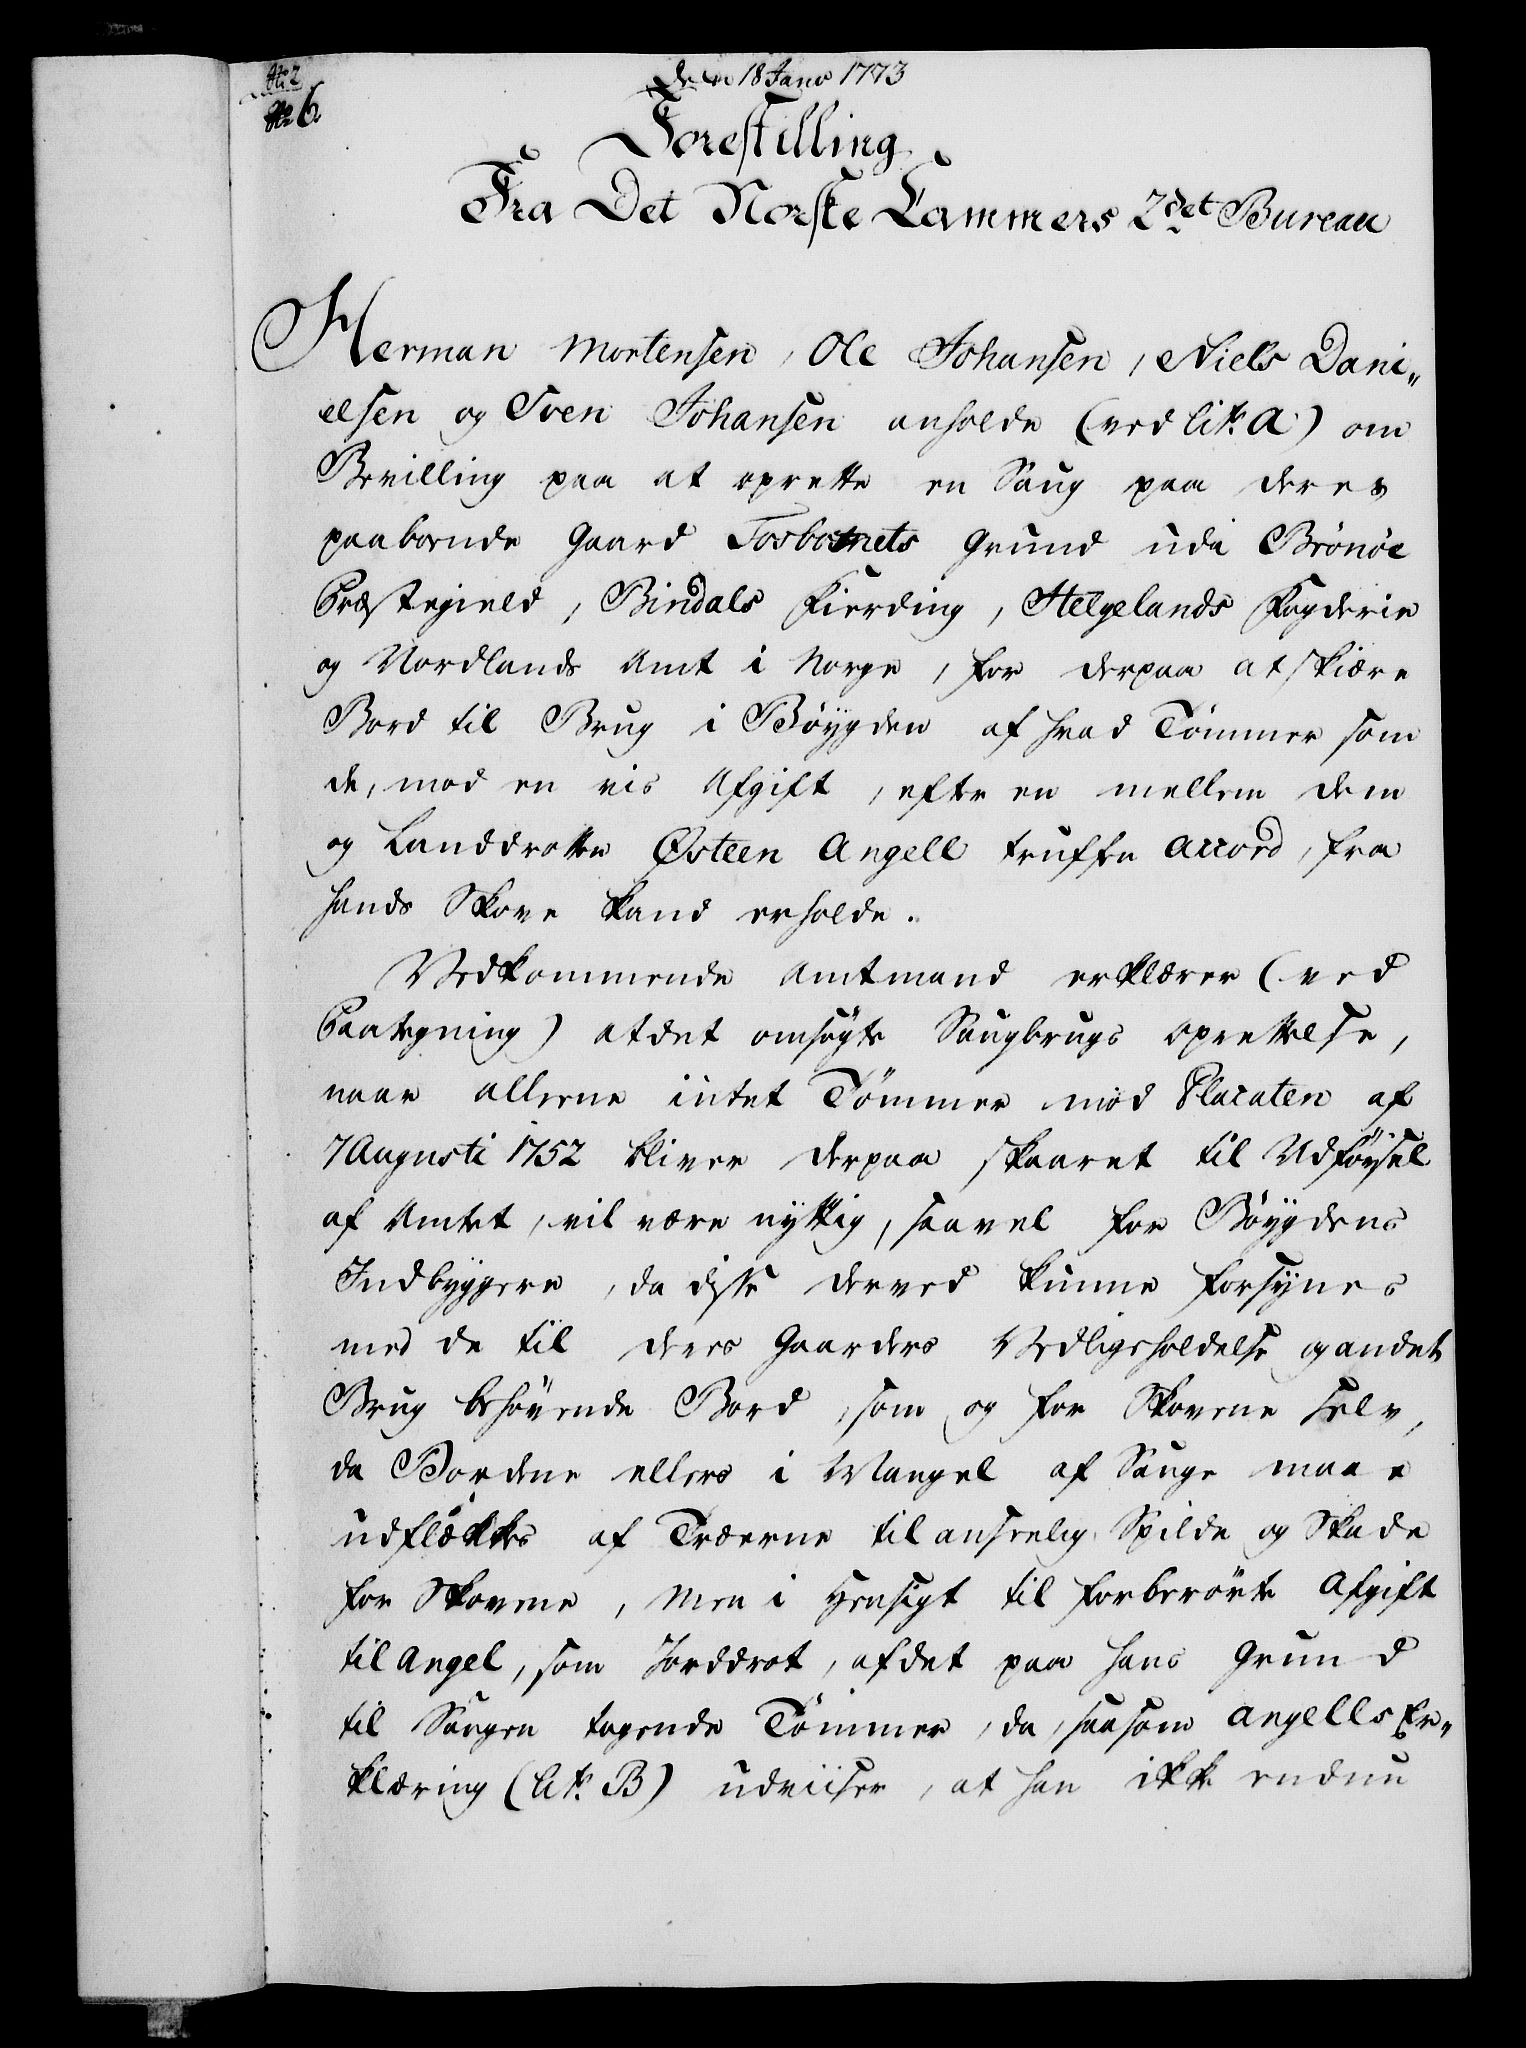 No 2
No 6
den 18 Janv 1773
Forestilling
Fra Det Norske Cammers 2det Bureau
Herman Mortensen, Ole Johansen, Niels Dani„
elsen og Sven Johansen anholde (ved lit. A) om
Bevilling paa at oprette en Saug paa deres
paaboende Gaard Tosbotnets Grund udi Brønøe
Præstegield, Bindals Fierding, Helgelands Fogderie
og Nordlands Amt i Norge, for derpaa at skiære
Bord til Brug i Bøygden af hvad Tømmer som
de, mod en vis Afgift, efter en mellem dem
og Landdrotten Østeen Angell truffen Accord, fra
hands Skove kand erholde.
Vedkommende Amtmand erklærer (ved
Paategning) at det omsøgte Saugbrugs oprettelse,
naar alleene intet Tømmer mod Placaten af
7 Augusti 1752 bliver derpaa skaaret til Udførsel
af Amtet, vil være nyttig, saavel for Bøygdens
Indbyggere, da disse derved kunne forsynes
med de til deres Gaarders Vedligeholdelse og andet
Brug behøvende Bord, som og for Skovene selv,
da Bordene ellers i Mangel af Sauge maae
udflækkes af Træerne til anseelig Spilde og Skade
for Skovene, Men i Hensigt til forberørte Afgift
til Angel, som Jorddrot, af det paa hans Grund
til Saugen tagende Tømmer, da, saasom Angells Er„
klæring (lit. B) udviiser, at han ikke endnu